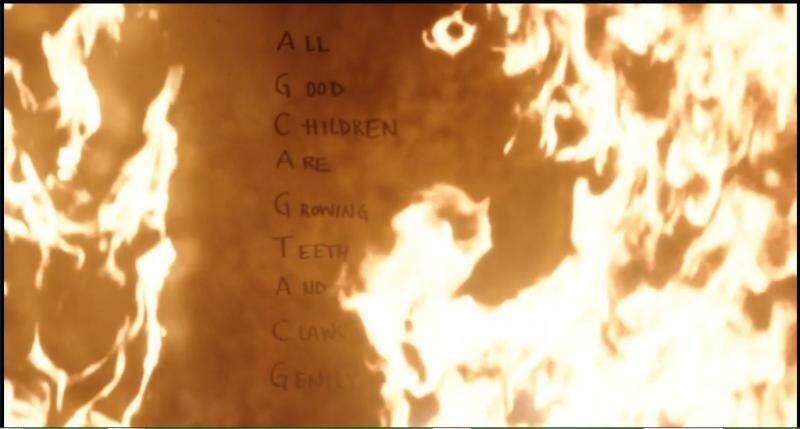 ALL
GOOD
CHILDREN
ARE
GROWING
TEETH
AND
CLAWS
GENTLY